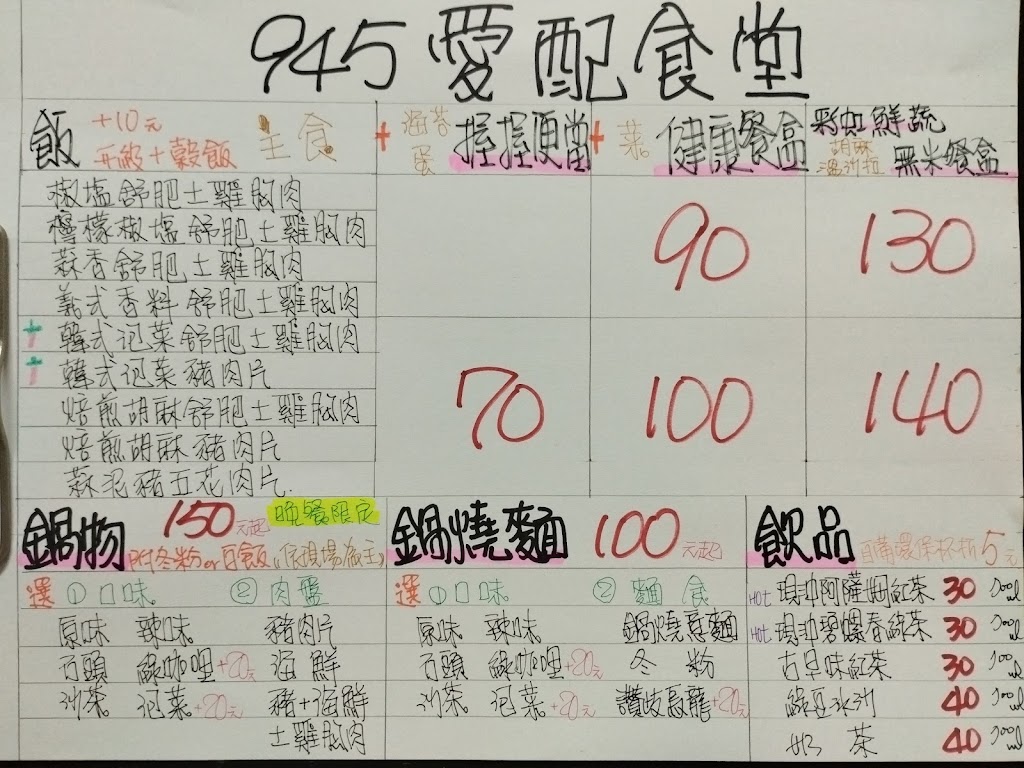 945愛配食堂
飯 +10元 升級+穀飯 主食
+ 海苔蛋 握握便當
+ 菜 健康餐盒
彩虹鮮蔬
胡麻 油沙拉 黑米餐盒
椒塩舒肥土雞胸肉
檸檬椒塩舒肥土雞胸肉
蒜香舒肥土雞胸肉
義式香料舒肥土雞胸肉
90 130
韓式泡菜舒肥土雞胸肉
韓式泡菜豬肉片
焙煎胡麻舒肥土雞胸肉
焙煎胡麻豬肉片
蒜泥豬五花肉片
70 100 140
鍋物 150元起 晚餐限定
附冬粉or白飯(依現場為主)
選 ①口味 ②肉盤
原味 辣味 豬肉片
石頭 綠咖哩+20元 海鮮
沙茶 泡菜+20元 豬+海鮮
土雞胸肉
鍋燒麵 100元起
選 ①口味 ②麵食
原味 辣味 鍋燒意麵
石頭 綠咖哩+20元 冬粉
沙茶 泡菜+20元 讚岐烏龍+20元
飲品 自備環保杯折5元
HOT 現沖阿薩姆紅茶 30
HOT 現沖碧螺春綠茶 30
古早味紅茶 30
綠豆冰沙 40
奶茶 40